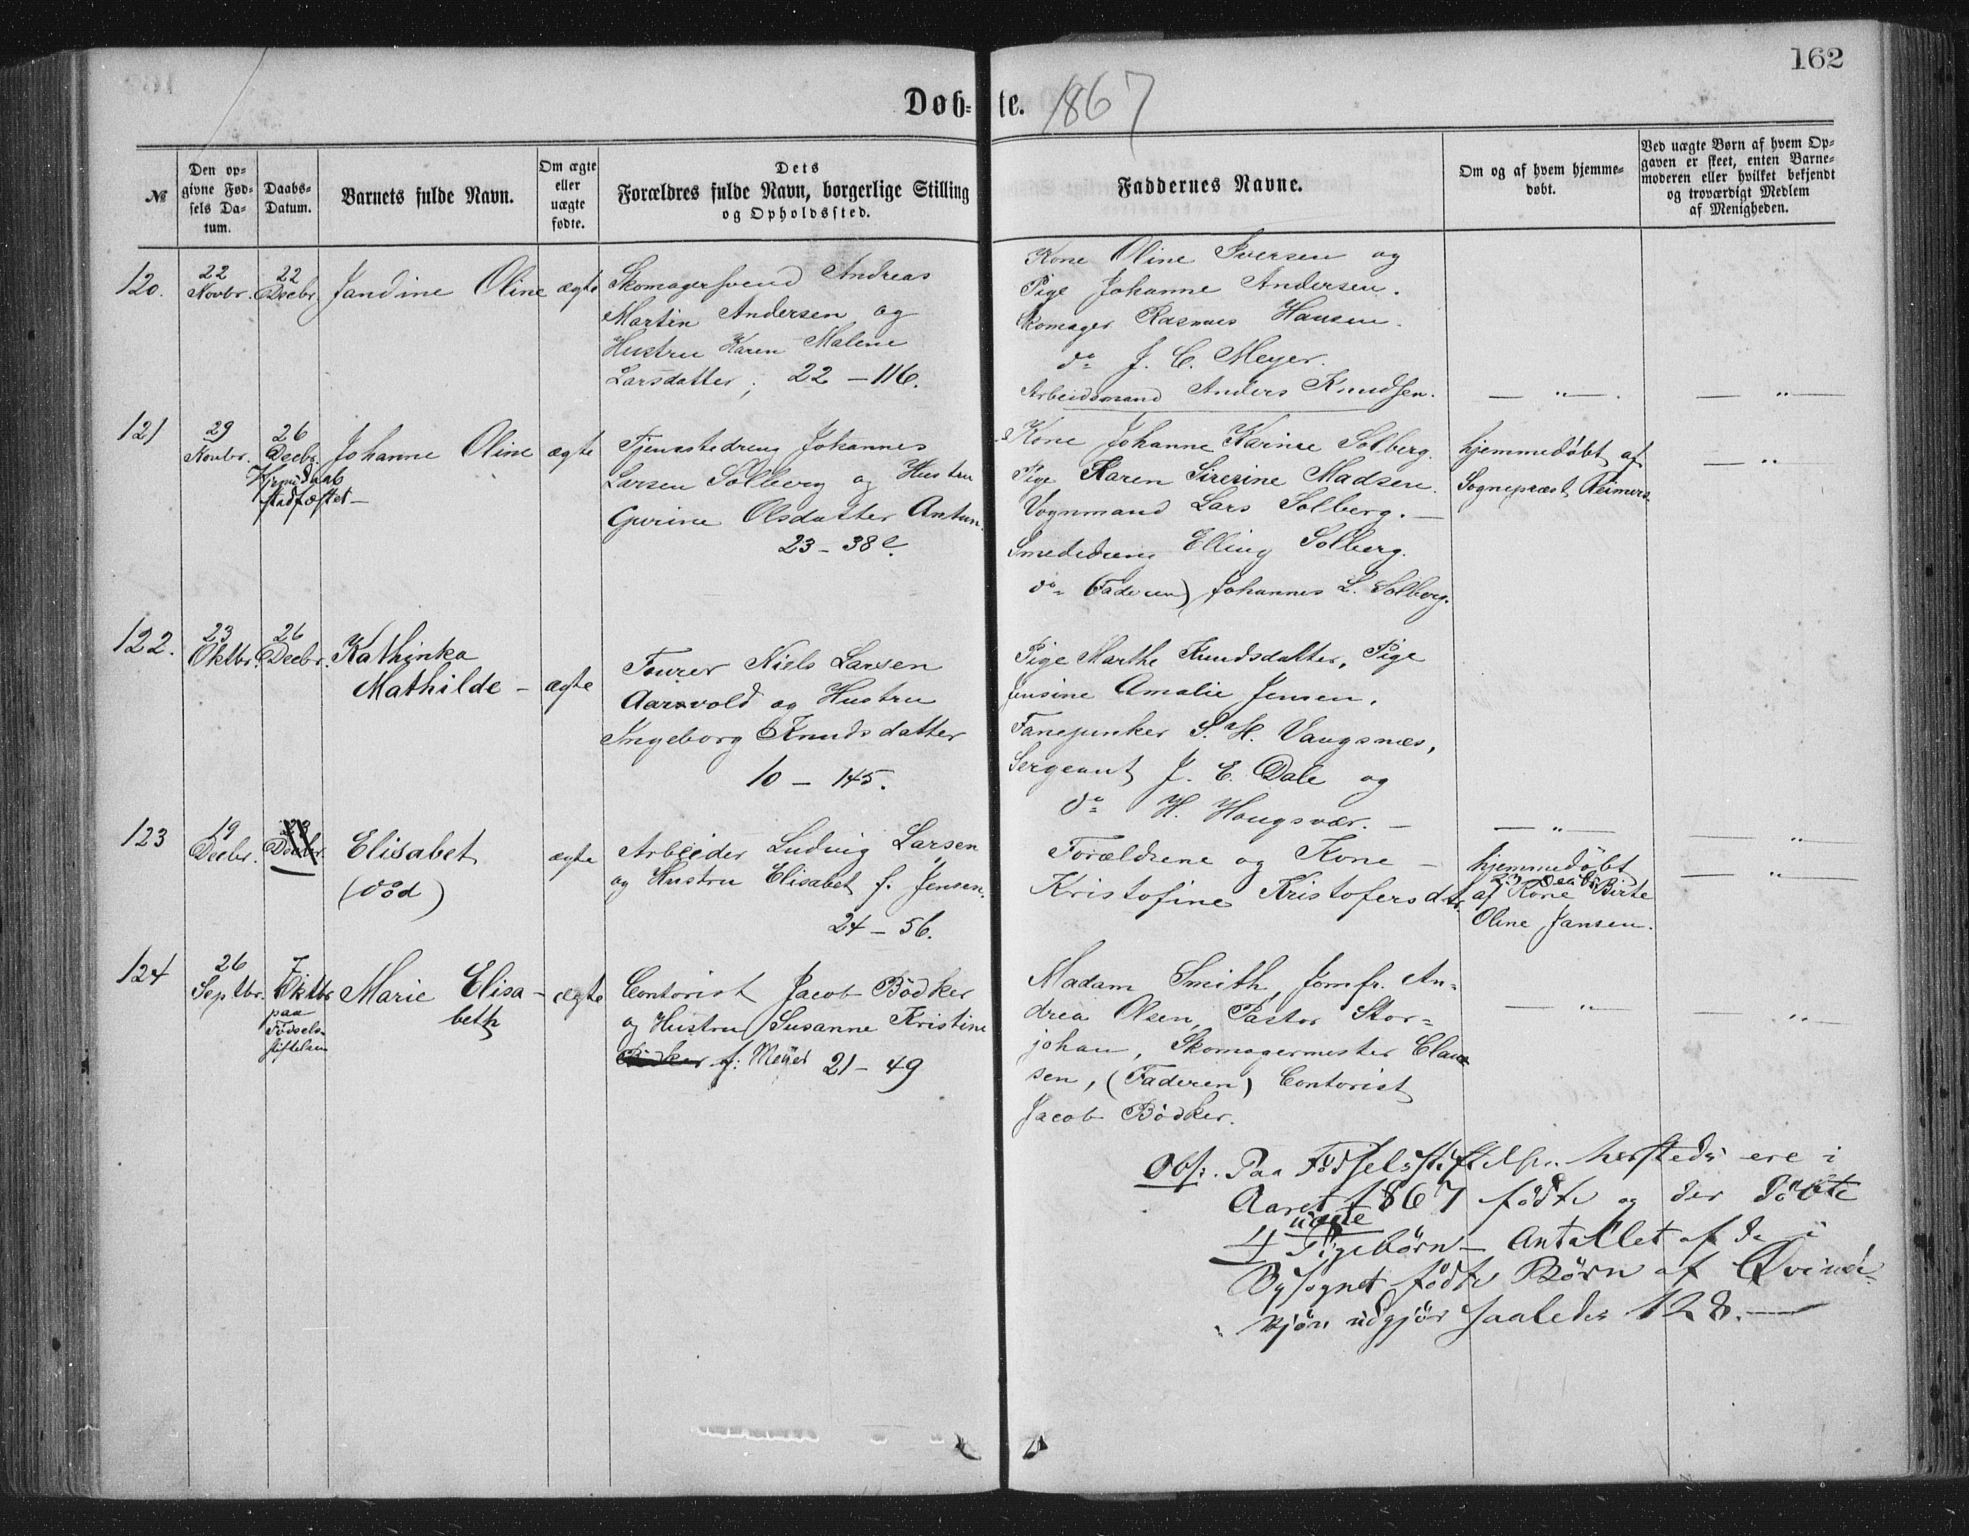 162
Døb- te. 1867
№
Den op-
givne Fød-
sels Da-
tum.
Daabs-
Datum.
Barnets fulde Navn.
Om ægte
eller
uægte
fødte.
Dets
Forældres fulde Navn, borgerlige Stilling
og Opholdssted.
Faddernes Navne.
Om og af hvem hjemme-
døbt.
Ved uægte Børn af hvem Op-
gaven er skeet, enten Barne-
moderen eller hvilket bekjendt
og troværdigt Medlem
af Menigheden.
120.
22
Novbr.
22
Decbr.
Jandine Oline
ægte
Skomagersvend Andreas
Martin Andersen og
Hustru Karen Malene
Larsdatter; 22 – 116.
Kone Oline Iversen og
Pige Johanne Andersen.
Skomager Rasmus Hansen.
do J. C. Meyer.
Arbeidsmand Anders Knudsen.
— „ — .
— „ —
121
29
Novbr.
26
Decbr.
Hjemmedaab
stadfæstet –
Johanne Oline
ægte
Tjenestedreng Johannes
Larsen Solberg og Hustru
Gurine Olsdatter
23 – 38
Kone Johanne Karine Solberg.
Pige Karen Siresine Madsen.
Vognmand Lars Solberg. –
Smededreng Elling Solberg.
do (Faderen) Johannes L. Solberg.
hjemmedøbt af
Sognepræst Reimers
— „
122.
23
Oktbr.
26
Decbr.
Kathinka
Mathilde –
ægte
Fourer Niels Larsen
Aarsvold og Hustru
Ingeborg Knudsdatter
10 – 145.
Pige Marthe Knudsdatter, Pige
Jensine Amalie Jensen,
Fanejunker S. H. Vangsnæs,
Sergeant J. E. Dale og
do H. Haugsvær. –
— „ —
— „
123
19
Decbr.
Decbr.
Elisabet
(død)
ægte
Arbeider Ludvig Larsen
og Hustru Elisabet f. Jensen.
24 – 56.
Forældrene og Kone –
Kristofine Kristofersdtr.
hjemmedøbt
23 Decbr
af Kone Birte
Oline Jansen.
— „ —
124
26
Septbr.
7
Oktbr
paa
Fødsels-
stiftelsen
Marie Elisa-
beth
ægte
Contorist Jacob Bödker
og Hustru Susanne Kristine
Bödker f: Meyer 21 – 49
Madam Smith, Jomfr. An-
drea Olsen, Pastor Stor-
johan, Skomagermester Clau-
sen, (Faderen) Contorist
Jacob Bödker.
— „ —
— „ —
Obs: Paa Fødselsstiftelsen hersteds ere i
Aaret 1867 fødte og der døbte
uægte
4 Pigebørn – Antallet af de i
Bysognet fødte Børn af Qvinde-
kjøn udgjør saaledes 128. —